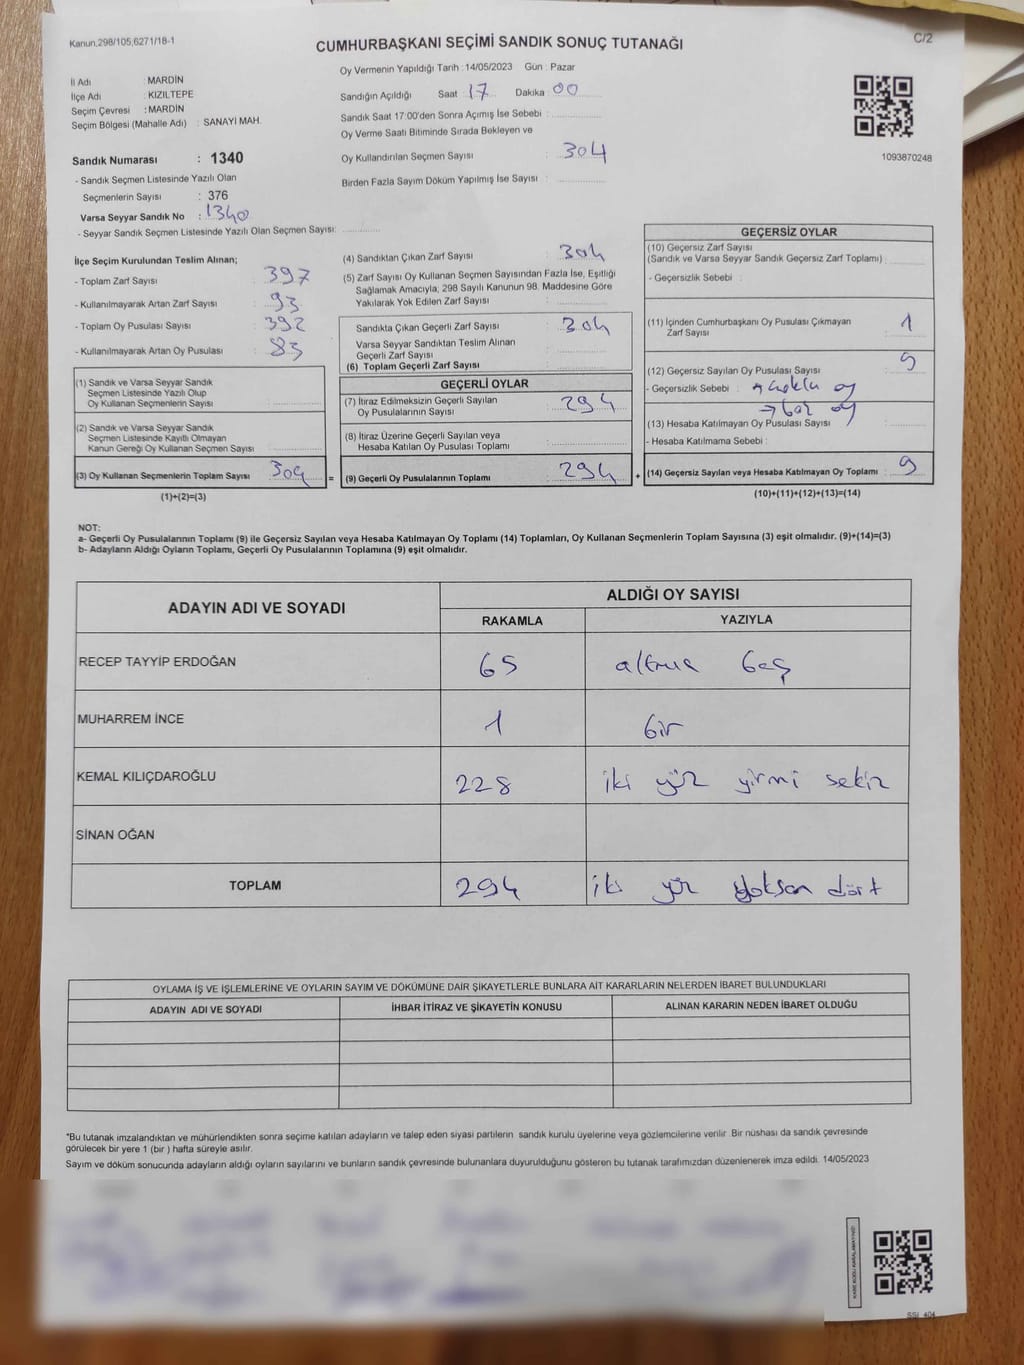 Kanun.298/105,6271/18-1
C/2
CUMHURBAŞKANI SEÇİMİ SANDIK SONUÇ TUTANAĞI
Oy Vermenin Yapıldığı Tarih : 14/05/2023 Gün : Pazar
İl Adı : MARDİN
İlçe Adı : KIZILTEPE
Seçim Çevresi : MARDİN
Seçim Bölgesi (Mahalle Adı) : SANAYİ MAH.
Sandığın Açıldığı Saat 17 Dakika 00
Sandık Saat 17:00'den Sonra Açımış İse Sebebi :
Oy Verme Saati Bitiminde Sırada Bekleyen ve
Oy Kullandırılan Seçmen Sayısı : 304
Birden Fazla Sayım Döküm Yapılmış İse Sayısı :
1093870248
Sandık Numarası : 1340
- Sandık Seçmen Listesinde Yazılı Olan
Seçmenlerin Sayısı : 376
Varsa Seyyar Sandık No : 1340
- Seyyar Sandık Seçmen Listesinde Yazılı Olan Seçmen Sayısı:
İlçe Seçim Kurulundan Teslim Alınan;
- Toplam Zarf Sayısı : 397
- Kullanılmayarak Artan Zarf Sayısı : 93
- Toplam Oy Pusulası Sayısı : 392
- Kullanılmayarak Artan Oy Pusulası : 83
(1) Sandık ve Varsa Seyyar Sandık
Seçmen Listesinde Yazılı Olup
Oy Kullanan Seçmenlerin Sayısı :
(2) Sandık ve Varsa Seyyar Sandık
Seçmen Listesinde Kayıtlı Olmayan
Kanun Gereği Oy Kullanan Seçmen Sayısı :
(3) Oy Kullanan Seçmenlerin Toplam Sayısı : 304
(1)+(2)=(3)
=
(4) Sandıktan Çıkan Zarf Sayısı : 304
(5) Zarf Sayısı Oy Kullanan Seçmen Sayısından Fazla İse, Eşitliği
Sağlamak Amacıyla; 298 Sayılı Kanunun 98. Maddesine Göre
Yakılarak Yok Edilen Zarf Sayısı :
Sandıkta Çıkan Geçerli Zarf Sayısı : 304
Varsa Seyyar Sandıktan Teslim Alınan
Geçerli Zarf Sayısı :
(6) Toplam Geçerli Zarf Sayısı :
GEÇERLİ OYLAR
(7) İtiraz Edilmeksizin Geçerli Sayılan
Oy Pusulalarının Sayısı : 294
(8) İtiraz Üzerine Geçerli Sayılan veya
Hesaba Katılan Oy Pusulası Toplamı :
(9) Geçerli Oy Pusulalarının Toplamı : 294
+
GEÇERSİZ OYLAR
(10) Geçersiz Zarf Sayısı
(Sandık ve Varsa Seyyar Sandık Geçersiz Zarf Toplamı) :
- Geçersizlik Sebebi :
(11) İçinden Cumhurbaşkanı Oy Pusulası Çıkmayan
Zarf Sayısı : 1
(12) Geçersiz Sayılan Oy Pusulası Sayısı : 9
- Geçersizlik Sebebi : oy
→ boz oy
(13) Hesaba Katılmayan Oy Pusulası Sayısı :
- Hesaba Katılmama Sebebi :
(14) Geçersiz Sayılan veya Hesaba Katılmayan Oy Toplamı : 9
(10)+(11)+(12)+(13)=(14)
NOT:
a- Geçerli Oy Pusulalarının Toplamı (9) ile Geçersiz Sayılan veya Hesaba Katılmayan Oy Toplamı (14) Toplamları, Oy Kullanan Seçmenlerin Toplam Sayısına (3) eşit olmalıdır. (9)+(14)=(3)
b- Adayların Aldığı Oyların Toplamı, Geçerli Oy Pusulalarının Toplamına (9) eşit olmalıdır.
ADAYIN ADI VE SOYADI
ALDIĞI OY SAYISI
RAKAMLA YAZIYLA
RECEP TAYYİP ERDOĞAN 65 altmış beş
MUHARREM İNCE 1 bir
KEMAL KILIÇDAROĞLU 228 iki yüz yirmi sekiz
SİNAN OĞAN
TOPLAM 294 iki yüz doksan dört
OYLAMA İŞ VE İŞLEMLERİNE VE OYLARIN SAYIM VE DÖKÜMÜNE DAİR ŞİKAYETLERLE BUNLARA AİT KARARLARIN NELERDEN İBARET BULUNDUKLARI
ADAYIN ADI VE SOYADI İHBAR İTİRAZ VE ŞİKAYETİN KONUSU ALINAN KARARIN NEDEN İBARET OLDUĞU
"Bu tutanak imzalandıktan ve mühürlendikten sonra seçime katılan adayların ve talep eden siyasi partilerin sandık kurulu üyelerine veya gözlemcilerine verilir. Bir nüshası da sandık çevresinde
görülecek bir yere 1 (bir ) hafta süreyle asılır.
Sayım ve döküm sonucunda adayların aldığı oyların sayılarını ve bunların sandık çevresinde bulunanlara duyurulduğunu gösteren bu tutanak tarafımızdan düzenlenerek imza edildi. 14/05/2023
KARE KODU KARALAMAYINIZ!
SSI_404